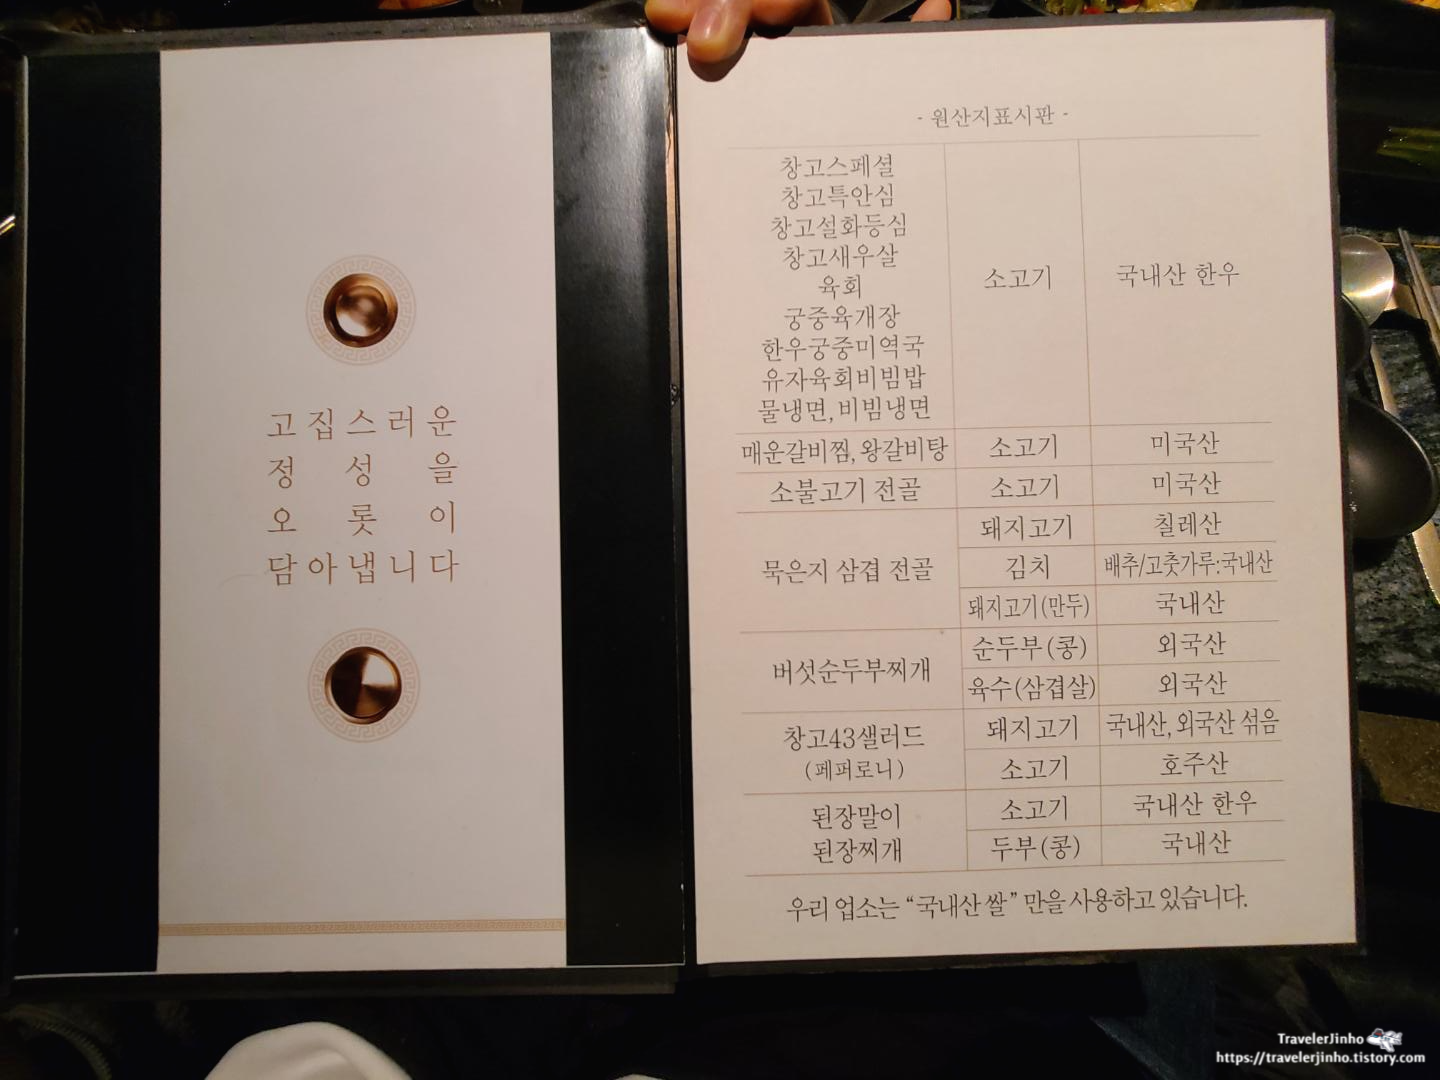 고집스러운
정성을
오롯이
담아냅니다
- 원산지표시판 -
창고스페셜
창고특안심
창고설화등심
창고새우살
육회
궁중육개장
한우궁중미역국
유자육회비빔밥
물냉면, 비빔냉면
소고기
국내산 한우
매운갈비찜, 왕갈비탕 소고기 미국산
소불고기 전골 소고기 미국산
묵은지 삼겹 전골
돼지고기 칠레산
김치 배추/고춧가루:국내산
돼지고기(만두) 국내산
버섯순두부찌개
순두부(콩) 외국산
육수(삼겹살) 외국산
창고43샐러드
(페퍼로니)
돼지고기 국내산, 외국산 섞음
소고기 호주산
된장말이
된장찌개
소고기 국내산 한우
두부(콩) 국내산
우리 업소는 “국내산 쌀” 만을 사용하고 있습니다.
TravelerJinho
https://travelerjinho.tistory.com